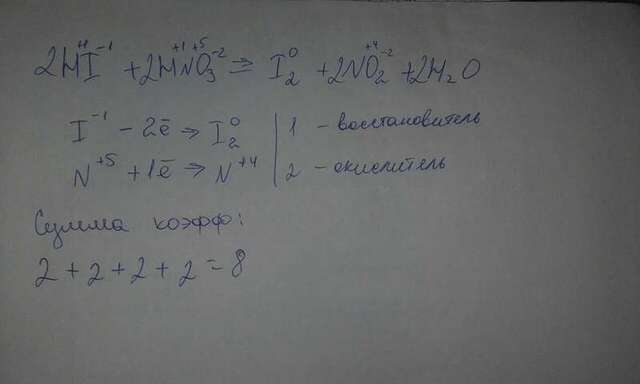 2H⁺¹I⁻¹ + 2H⁺¹N⁺⁵O₃⁻² ⇒ I₂⁰ + 2N⁺⁴O₂⁻² + 2H₂O
I⁻¹ − 2ē → I₂⁰ | 1 – восстановитель
N⁺⁵ + 1ē → N⁺⁴ | 2 – окислитель
Сумма коэфф:
2 + 2 + 2 + 2 = 8